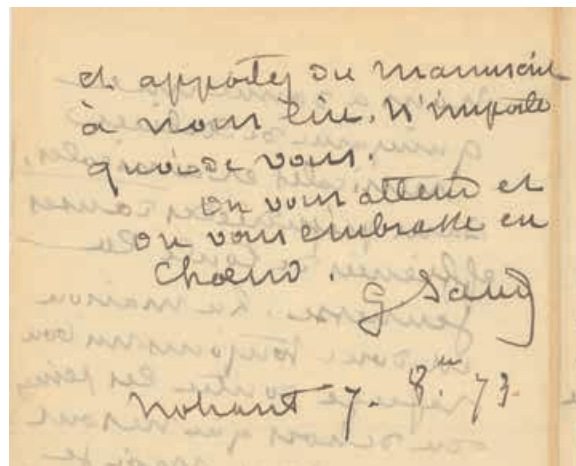 et apportez du manuscrit
à nous lire. N'importe
quoi de vous.
on vous attend et
on vous embrasse en
choeur.
G Sand
Nohant 7. 8bre 73.